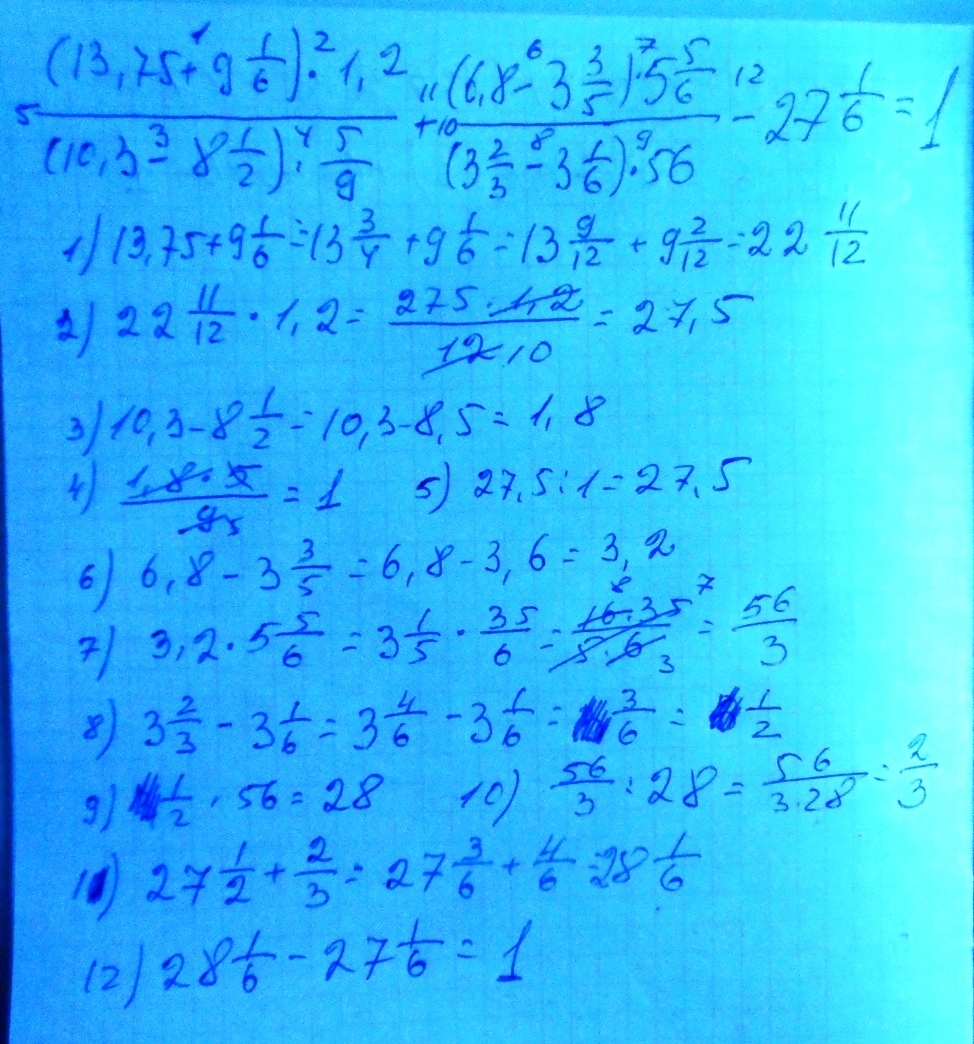 (13,75 +¹ 9 1/6) ·² 1,2 / (10,3 -³ 8 1/2) ·⁴ 5/9 +¹¹ (6,8 -⁶ 3 3/5) ·⁷ 5 5/6 / (3 2/3 -⁸ 3 1/6) ·⁹ 56 -¹² 27 1/6 = 1
1) 13,75 + 9 1/6 = 13 3/4 + 9 1/6 = 13 9/12 + 9 2/12 = 22 11/12
2) 22 11/12 · 1,2 = 275 · 1,2 / 12 10 = 27,5
3) 10,3 - 8 1/2 = 10,3 - 8,5 = 1,8
4) 1,8 · 5 / 9 = 1 5) 27,5 : 1 = 27,5
6) 6,8 - 3 3/5 = 6,8 - 3,6 = 3,2
7) 3,2 · 5 5/6 = 3 1/5 · 35/6 = 16 · 35 / 5 · 6 = 56/3
8) 3 2/3 - 3 1/6 = 3 4/6 - 3 1/6 = 3/6 = 1/2
9) 1/2 · 56 = 28 10) 56/3 : 28 = 56 / 3 · 28 = 2/3
11) 27 1/2 + 2/3 = 27 3/6 + 4/6 = 28 1/6
12) 28 1/6 - 27 1/6 = 1